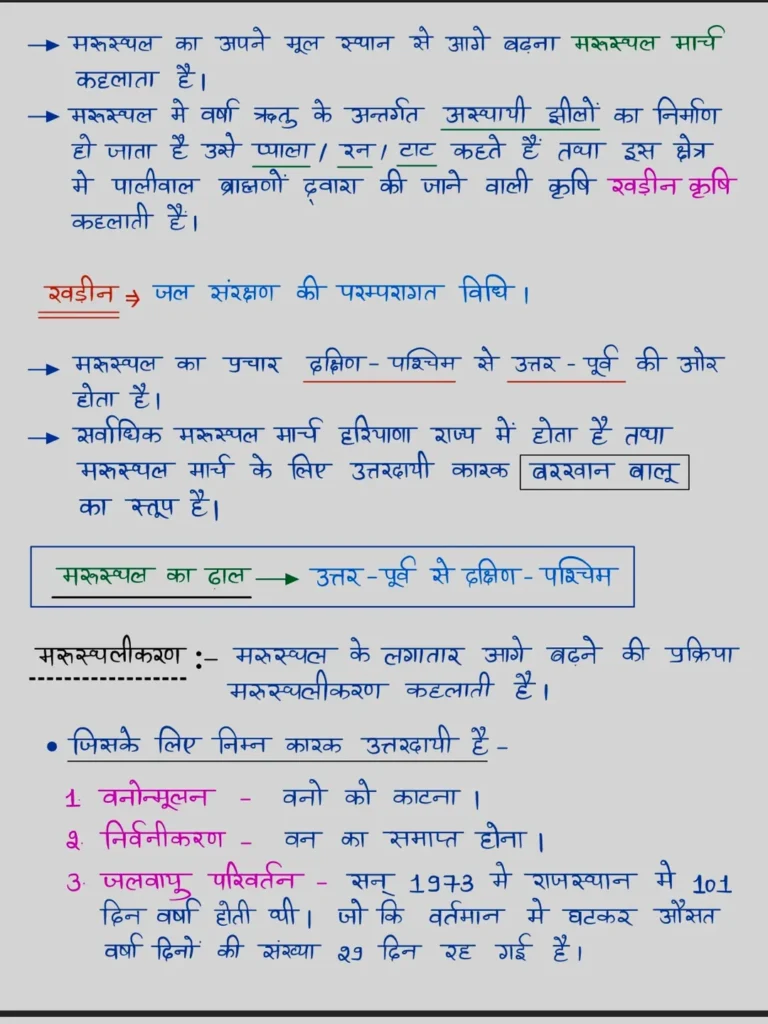 → मरुस्थल का अपने मूल स्थान से आगे बढ़ना मरुस्थल मार्च
कहलाता है।
→ मरुस्थल मे वर्षा ऋतु के अन्तर्गत अस्थायी झीलों का निर्माण
हो जाता है उसे प्याला / रन / टाट कहते हैं तथा इस क्षेत्र
मे पालीवाल ब्राह्मणों द्वारा की जाने वाली कृषि खड़ीन कृषि
कहलाती हैं।
खड़ीन ⇒ जल संरक्षण की परम्परागत विधि।
→ मरुस्थल का प्रचार दक्षिण - पश्चिम से उत्तर - पूर्व की ओर
होता है।
→ सर्वाधिक मरुस्थल मार्च हरियाणा राज्य में होता है तथा
मरुस्थल मार्च के लिए उत्तरदायी कारक बरखान बालू
का स्तूप है।
मरुस्थल का ढाल → उत्तर - पूर्व से दक्षिण - पश्चिम
मरुस्थलीकरण :- मरुस्थल के लगातार आगे बढ़ने की प्रक्रिया
मरुस्थलीकरण कहलाती है।
• जिसके लिए निम्न कारक उत्तरदायी है -
1. वनोन्मूलन - वनो को काटना।
२. निर्वनीकरण - वन का समाप्त होना।
3. जलवायु परिवर्तन - सन् 1973 मे राजस्थान मे 101
दिन वर्षा होती थी। जो कि वर्तमान मे घटकर औसत
वर्षा दिनों की संख्या २९ दिन रह गई है।